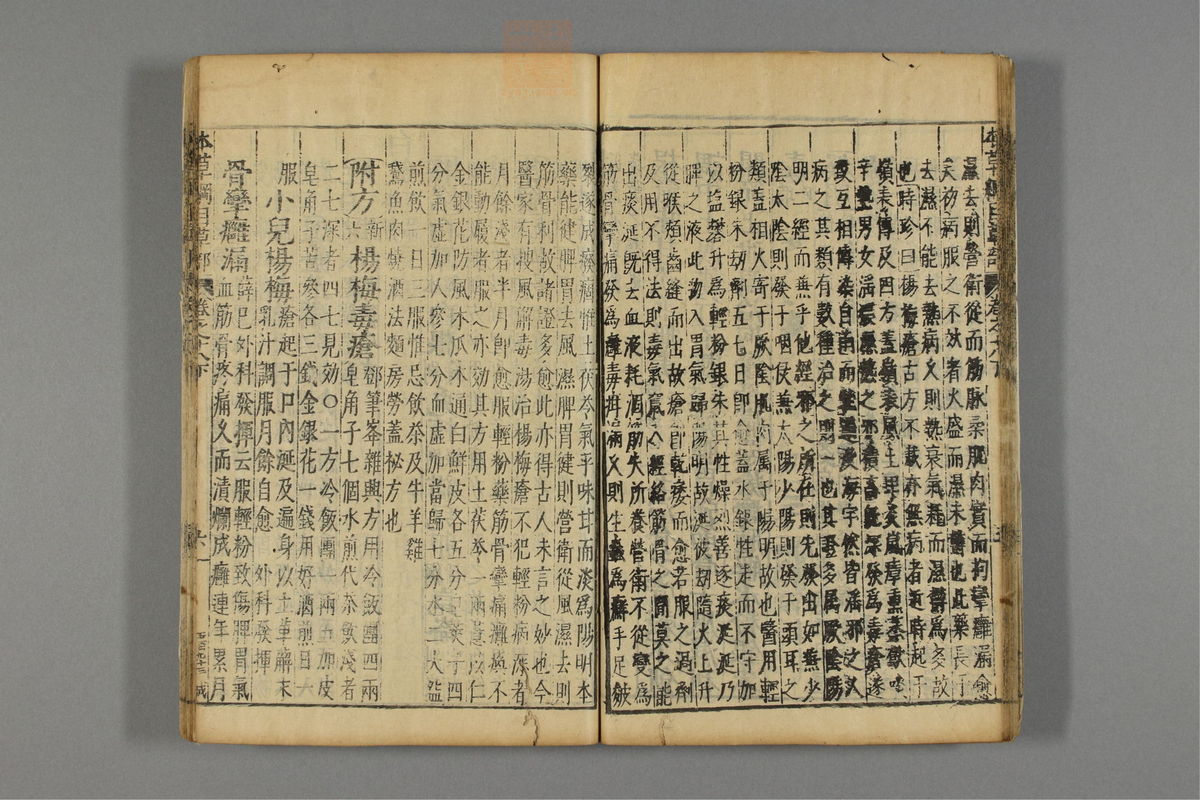 濕去則營衛從而筋脉柔肌肉實而拘攣癰漏愈
矣初病服之不效者火盛而濕未鬱也此藥長于
去濕不能去熱病久則熱衰氣耗而濕鬱爲多故
也時珍曰楊梅瘡古方不載亦無病者近時起于
嶺表傳及四方蓋嶺表風土卑炎嵐瘴熏蒸
辛熱男女淫猥濕熱之邪積畜既深發爲毒瘡遂
致互相傳染自南而北遍及海宇然皆淫邪之人
病之其類有數種治之則一也其證多屬厥陰陽
明二經而兼乎他經邪之所在則先發出如兼少
陰太陰則發于咽喉兼太陽少陽則發于頭耳之
類蓋相火寄于厥陰肌肉屬于陽明故也醫用輕
粉銀朱劫劑五七日即愈蓋水銀性走而不守加
以鹽礬升爲輕粉銀朱其性燥烈善逐痰涎涎乃
脾之液此物入胃氣歸陽明故涎被劫隨火上升
從喉頰齒縫而出故瘡即乾痿而愈若服之過劑
及用不得法則毒氣竄入經絡筋骨之間莫之能
出痰涎既去血液耗涸筋失所養營衛不從變爲
筋骨攣痛發爲癰毒疳漏久則生蟲爲癬手足皴
裂遂成廢痼惟土茯苓氣平味甘而淡爲陽明本
藥能健脾胃去風濕脾胃健則營衛從風濕去則
筋骨利故諸證多愈此亦得古人未言之妙也今
醫家有搜風解毒湯治楊梅瘡不犯輕粉病深者
月餘淺者半月即愈服輕粉藥筋骨攣痛癱瘓不
能動履者服之亦効其方用土茯苓一兩薏苡仁
金銀花防風木瓜木通白鮮皮各五分皂莢子四
分氣虛加人參七分血虛加當歸七分水二大盌
煎飲一日三服惟忌飲茶及牛羊雞
鵝魚肉燒酒法麵房勞蓋秘方也
附方新六楊梅毒瘡鄧筆峯雜興方用冷飯團四兩
皂角子七個水煎代茶飲淺者
二七深者四七見効〇一方冷飯團一兩五加皮
皂角子苦參各三錢金銀花一錢用好酒煎日一
服小兒楊梅瘡起于口內延及遍身以土萆薢末
乳汁調服月餘自愈外科發揮
骨攣癰漏薛已外科發揮云服輕粉致傷脾胃氣
血筋骨疼痛久而潰爛成癰連年累月